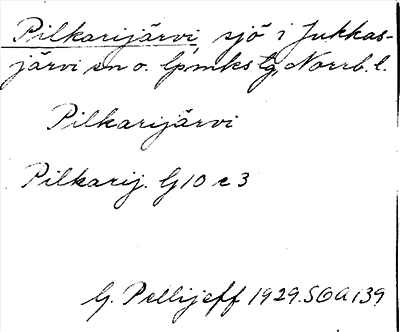 Pilkarijärvi, sjö i Jukkas-
järvi sn o. lpmks tg, Norrb. l.
Pilkarijärvi
Pilkarij. G10 c 3
G. Pellijeff 1929. SOA 139